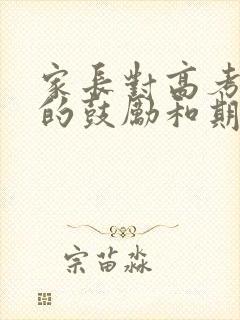 家長對高考
的鼓勵和期
宗苗淼